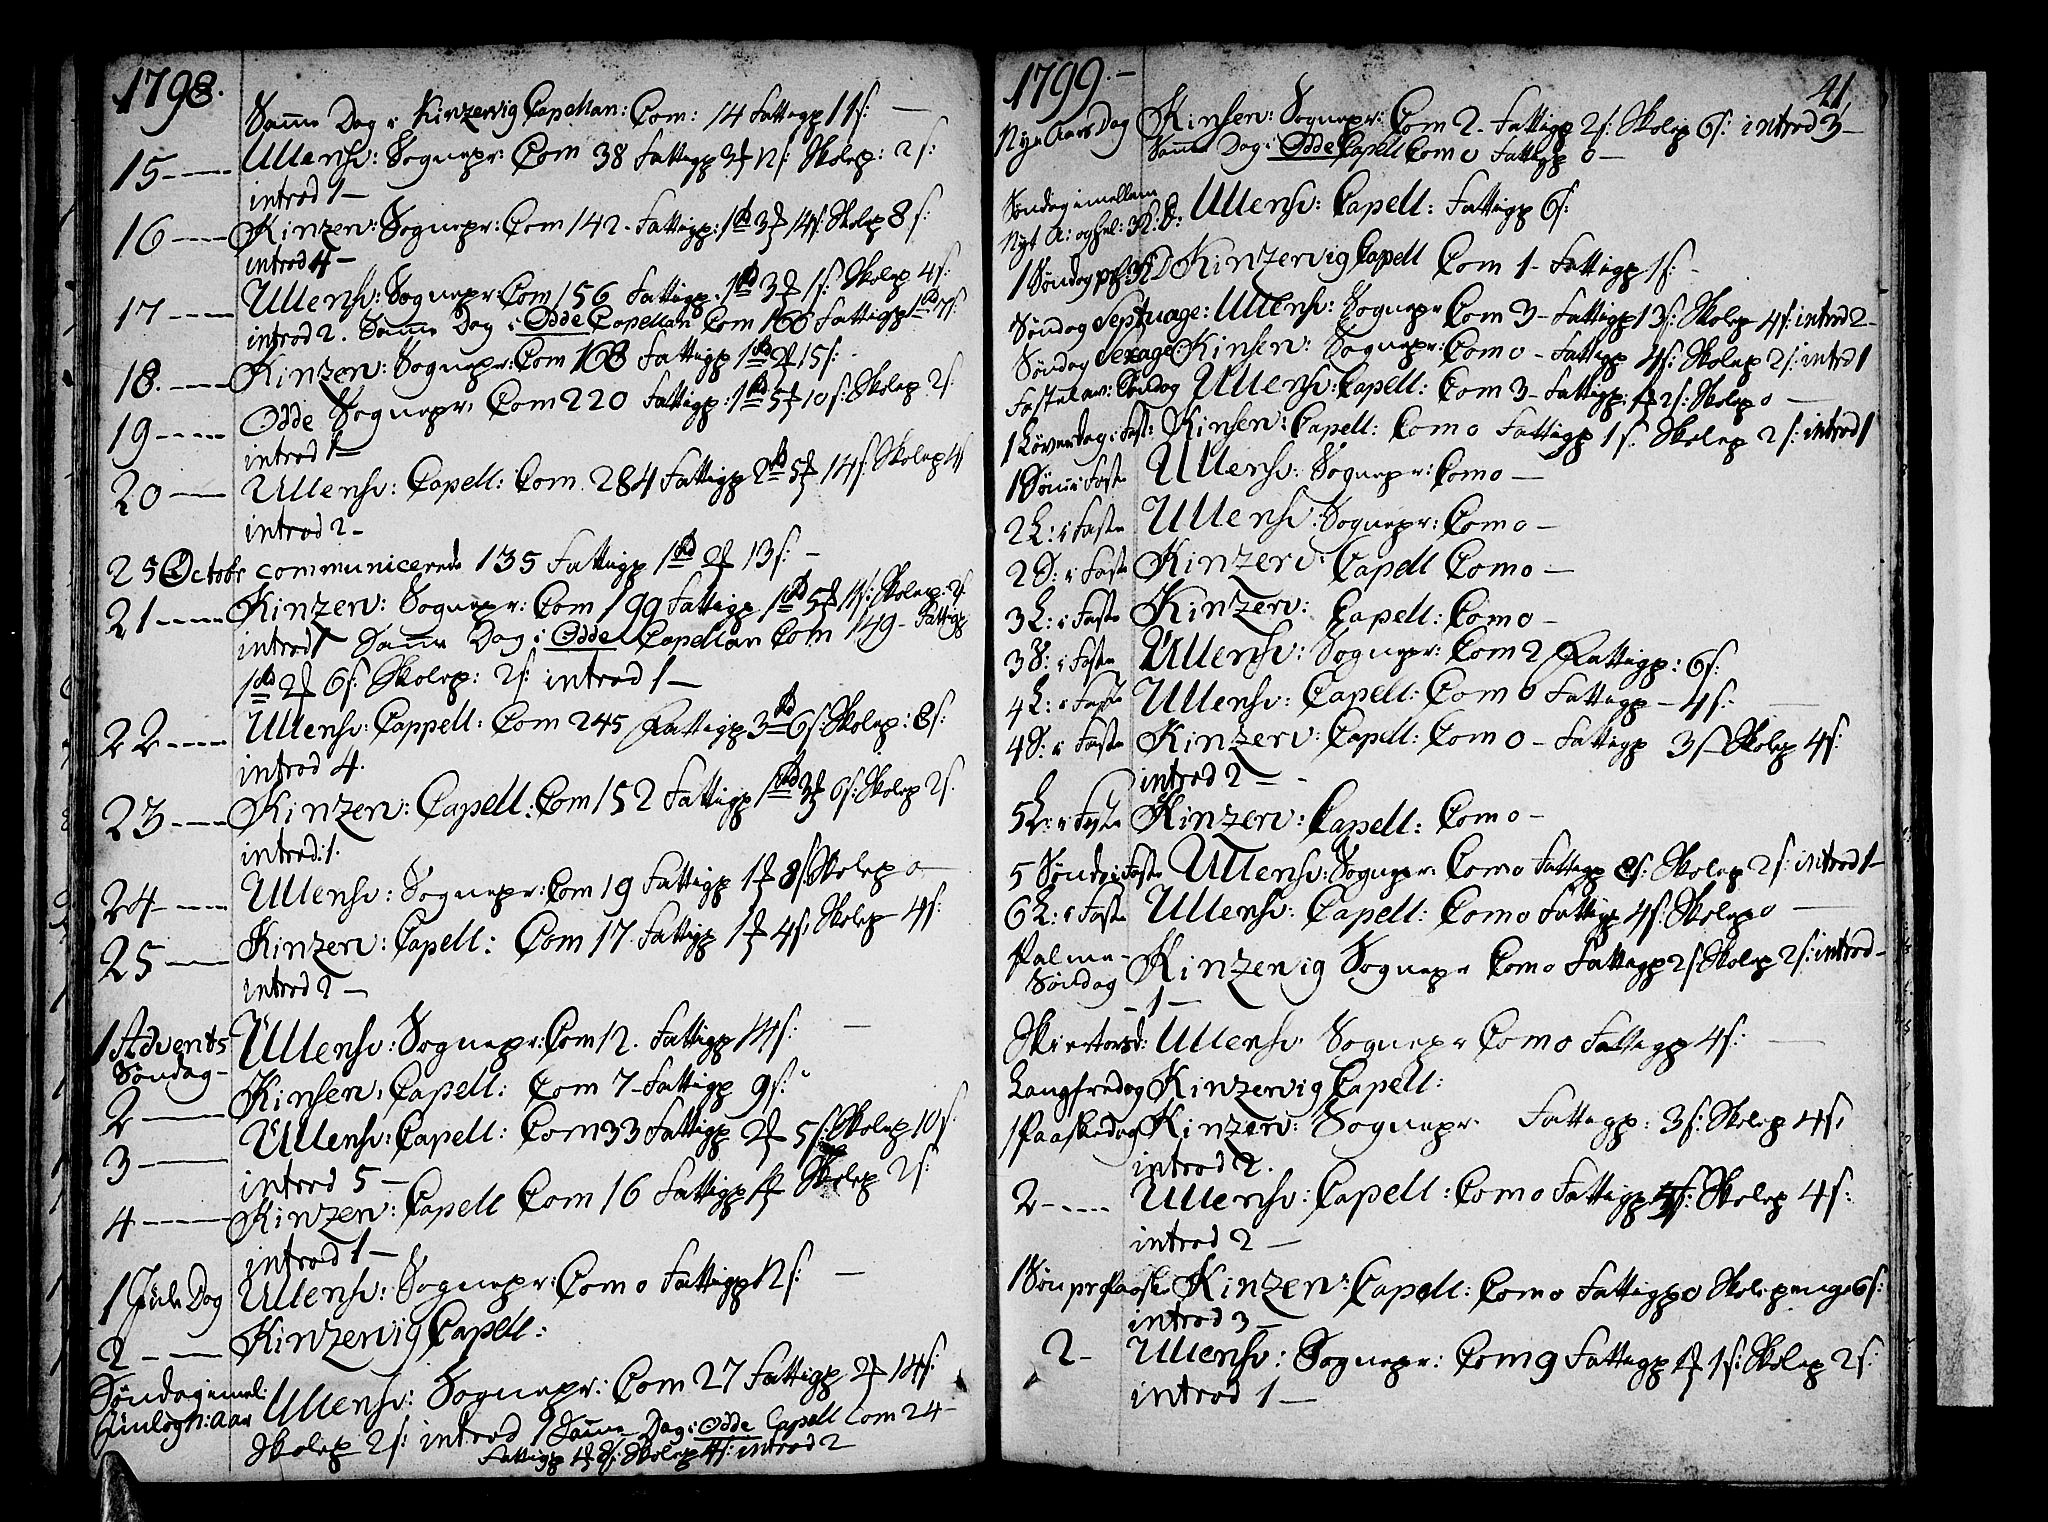 1798.
Samme Dag i Kinzervig Capellan: Com: 14 Fattigp 11s: —
15 — Ullensv: Sognepr: Com 38 Fattigp 3 12s: Skolep: 2s:
introd 1 —
16 — Kinzerv: Sognepr: Com 142. Fattigp: 1rd 3 14s: Skolep 8s:
introd 4 —
17 — Ullensv: Sognepr: Com 156 Fattigp: 1rd 3 1s: Skolep 4s:
introd 2. Samme Dag i Odde Capellan Com 166 Fattigp 1rd 17s:
18. — Kinzerv: Sognepr: Com 168 Fattigp 1rd 2 15s:
19 — Odde Sognepr: Com 220 Fattigp: 1rd 5 10s: Skolep 2s:
introd 1 —
20 — Ullensv: Capell: Com. 284 Fattigp 2rd 5 14s: Skolep 4s
introd 2 —
25 Octobr communicerede 135 Fattigp 1rd 2 13s: —
21 — Kinzerv: Sognepr: Com 199 Fattigp 1rd 5 11s: Skolep: 2s
introd 1 Samme Dag i Odde Capellan Com 149 — Fattigp
1rd 2 6s: Skolep: 2s: introd 1 —
22 — Ullensv: Cappell: Com 245 Fattigp 3rd 6s: Skolep: 8s:
introd 4.
23 — Kinzerv: Capell: Com 152 Fattigp 1rd 3 6s: Skolep 2s:
introd: 1.
24 — Ullensv: Sognepr: Com 19 Fattigp 1 8s Skolep 0 —
25 — Kinzerv: Capell: Com 17 Fattigp 1 4s: Skolep 4s:
introd 2 —
1 Advents Ullensv: Sognepr: Com 12. Fattigp 14s: —
Søndag —
2 — Kinserv: Capell: Com 7 — Fattigp 9s:
3 — Ullensv: Capell: Com 33 Fattigp 2 5s: Skolep 10s:
introd 5 —
4 — Kinzerv: Capell Com 16 Fattigp Skolep 2s:
introd 1 —
1 Jule Dag Ullensv: Sognepr: Com 0 Fattigp 12s: —
2 — Kinzervig Capell:
Søndag imel: Ullensv: Sognepr: Com 27 Fattigp 2 14s:
Juul og N: Aar
Skolep 2s: introd 1 Samme Dag i Odde Capell Com 24 —
Fattigp 1 8s: Skolep 4s: introd 2
1799. — 41
Nye Aars Dag Kinserv: Sognepr: Com 2. Fattigp 2s: Skolep 6s: introd 3 —
Samme Dag i Odde Capell Com 0 Fattigp 0 —
Søndag imellem
Nyt A: og Hel: 3 K: D: Ullensv: Capell: Fattigp 6s:
1 Søndag p H 3 K D Kinzervig Capell Com 1 — Fattigp 1s: —
Søndag Septuage: Ullensv: Sognepr Com 3 — Fattigp 13s: Skolep 4s: introd 2 —
Søndag Sexage: Kinserv: Sognepr: Com 0 — Fattigp 4s: Skolep 2s: intrd 1
Fastelav: Søndag Ullensv: Capell: Com 3 — Fattigp: 1 2s: Skolep 0 —
1 Løverdag i Fast: Kinserv: Capell: Com 0 Fattigp 1s: Skolep 2s: introd 1
1 Søn: i Faste Ullensv: Sognepr: Com 0 —
2 L: i Faste Ullensv: Sognepr: Com 0 —
2 S: i Faste Kinzerv: Capell Com 0 —
3 L: i Faste Kinzerv: Capell: Com 0 —
3 S: i Faste Ullensv: Sognepr: Com 2 Fattigp: 6s:
4 L: i Faste Ullensv: Capell: Com 0 Fattigp — 4s: —
4 S: i Faste Kinzerv: Capell: Com 0 — Fattigp 3s — Skolep 4s:
introd 2 —
5 L: i Faste Kinzerv: Capell: Com 0 —
5 Sønd: i Faste Ullensv: Sognepr: Com 0 Fattigp 8s: Skolep 2s: introd 1 —
6 L: i Faste Ullensv: Capell: Com 0 Fattigp 4s: Skolep 0 —
Palme — Kinzervig Sognepr Com 0 Fattigp 2s Skolep 2s: introd —
Søndag 1 —
Skiertorsd: Ullensv: Sognepr Com 0 Fattigp 4s: —
Langfredag Kinzervig Capell:
1 Paaskedag Kinzerv: Sognepr. Fattigp: 3s: Skolep 4s:
introd 2.
2 — Ullensv: Capell: Com 0 Fattigp 4s: Skolep 4s:
introd 2 —
1 Søn p: Paaske Kinzerv: Capell: Com 0 Fattigp 0 Skolepenge 6s:
introd 3 —
2 — Ullensv: Sognepr: Com 9 Fattigp 1 1s: Skolep 2s:
introd 1 —